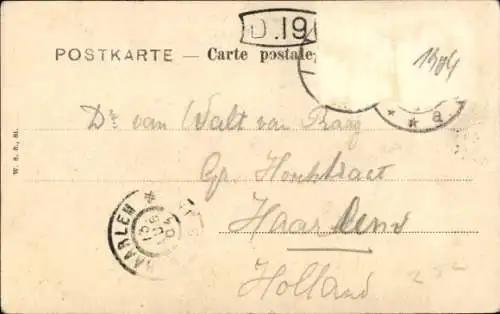 D.19
POSTKARTE — Carte postale
1904
Dr. van Walt van Praag
Gr. Houtstraat
Haarlem
Holland
W. & S., St.
HAARLEM
* * a